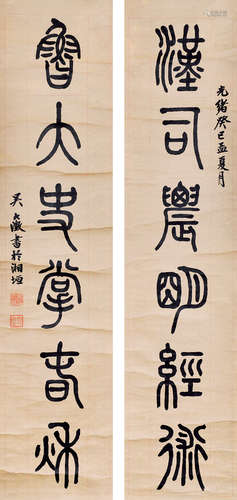 漢司農明經術
光緒癸巳孟夏月
魯大史掌春秋
吳大澂書於湘垣